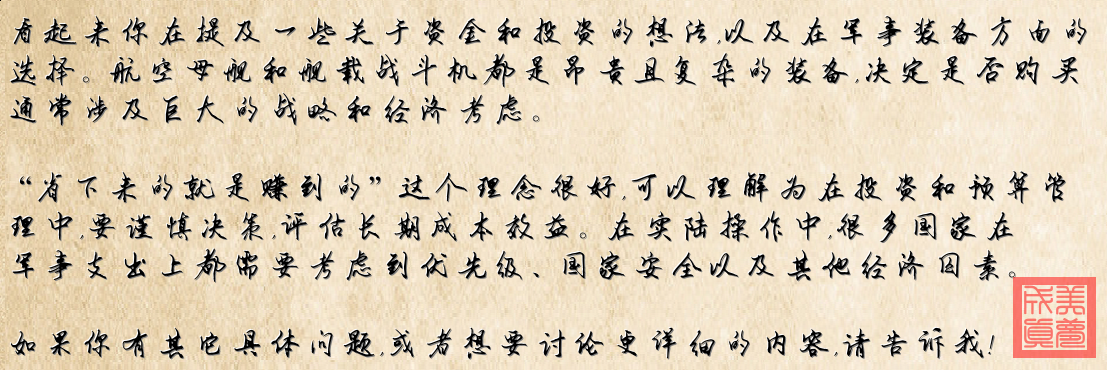 看起来你在提及一些关于资金和投资的想法,以及在军事装备方面的
选择。航空母舰和舰载战斗机都是昂贵且复杂的装备,决定是否购买
通常涉及巨大的战略和经济考虑。
“省下来的就是赚到的”这个理念很好,可以理解为在投资和预算管
理中,要谨慎决策,评估长期成本效益。在实陆操作中,很多国家在
军事支出上都需要考虑到优先级、国家安全以及其他经济因素。
如果你有其它具体问题,或者想要讨论更详细的内容,请告诉我!
美梦
成真